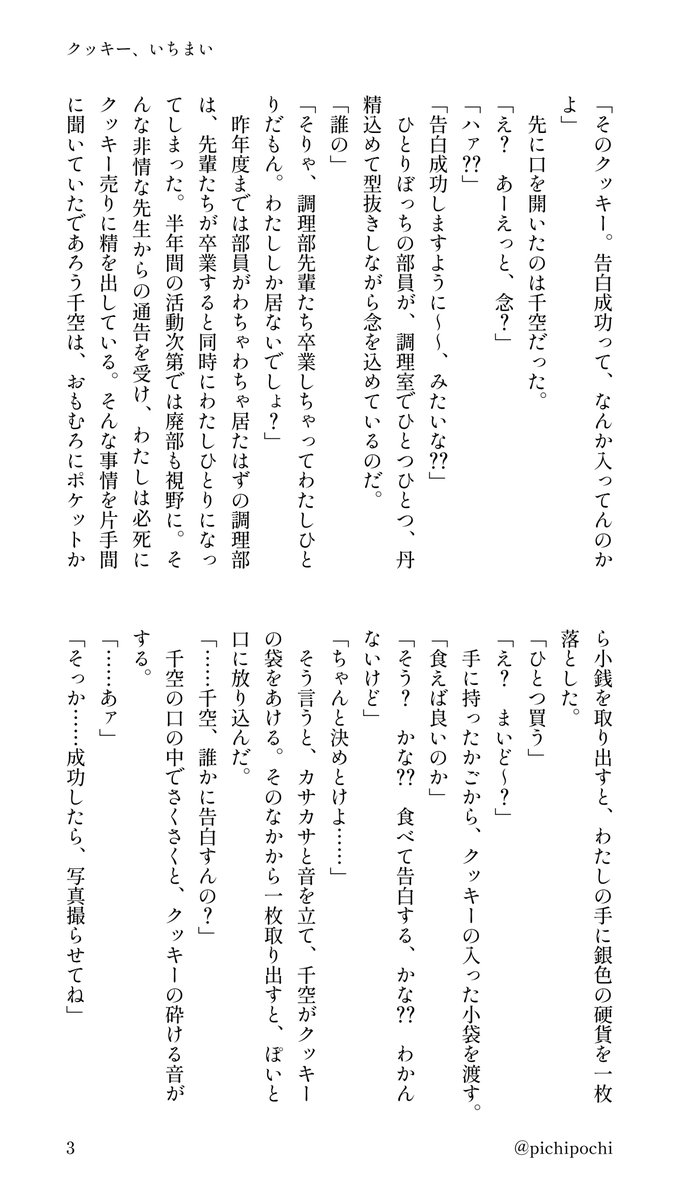 クッキー、いちまい
「そのクッキー。告白成功って、なんか入ってんのか
よ」
　先に口を開いたのは千空だった。
「え？　あーえっと、念？」
「ハァ??」
「告白成功しますように〜〜、みたいな??」
　ひとりぼっちの部員が、調理室でひとつひとつ、丹
精込めて型抜きしながら念を込めているのだ。
「誰の」
「そりゃ、調理部先輩たち卒業しちゃってわたしひと
りだもん。わたししか居ないでしょ？」
　昨年度までは部員がわちゃわちゃ居たはずの調理部
は、先輩たちが卒業すると同時にわたしひとりになっ
てしまった。半年間の活動次第では廃部も視野に。そ
んな非情な先生からの通告を受け、わたしは必死に
クッキー売りに精を出している。そんな事情を片手間
に聞いていたであろう千空は、おもむろにポケットか
ら小銭を取り出すと、わたしの手に銀色の硬貨を一枚
落とした。
「ひとつ買う」
「え？　まいど〜？」
　手に持ったかごから、クッキーの入った小袋を渡す。
「食えば良いのか」
「そう？　かな??　食べて告白する、かな??　わかん
ないけど」
「ちゃんと決めとけよ……」
　そう言うと、カサカサと音を立て、千空がクッキー
の袋をあける。そのなかから一枚取り出すと、ぽいと
口に放り込んだ。
「……千空、誰かに告白すんの？」
　千空の口の中でさくさくと、クッキーの砕ける音が
する。
「……あァ」
「そっか……成功したら、写真撮らせてね」
3
@pichipochi